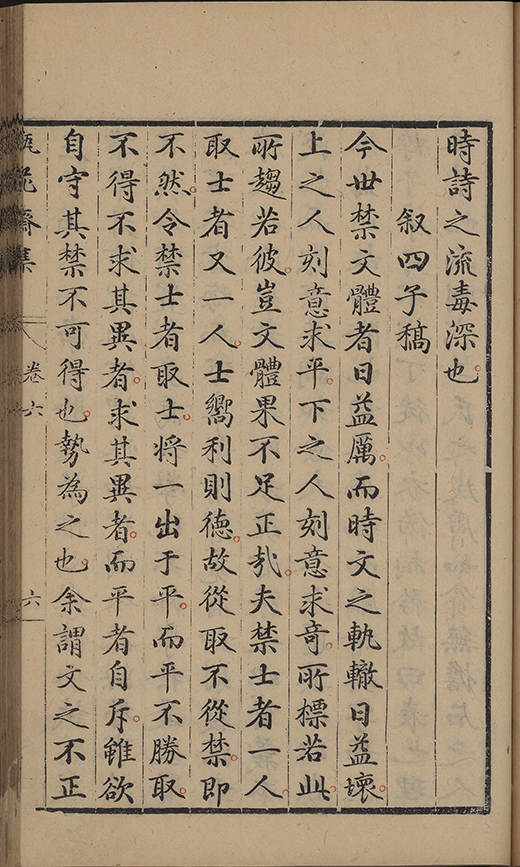 時詩之流毒深也
叙四子稿
今世禁文體者日益厲而時文之軌轍日益壞
上之人刻意求平下之人刻意求奇所標若此
所趨若彼豈文體果不足正㢤夫禁士者一人
取士者又一人士嚮利則德故從取不從禁即
不然令禁士者取士將一出于平而平不勝取
不得不求其異者求其異者而平者自斥雖欲
自守其禁不可得也勢為之也余謂文之不正
瓶花齋集
卷六
六